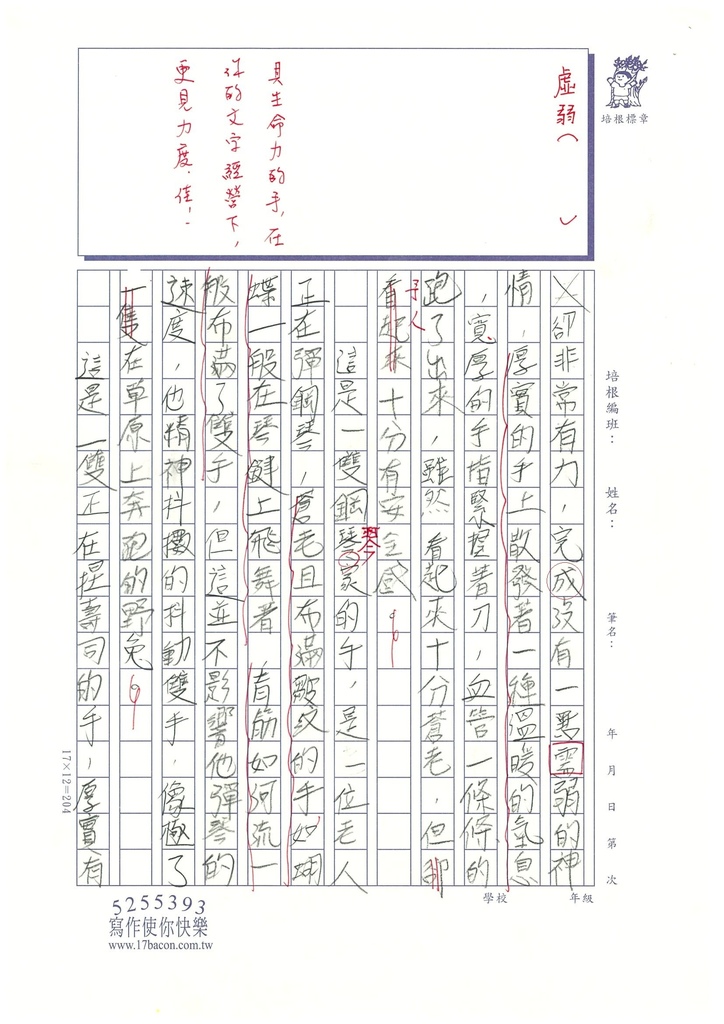 虛弱（　　）
具生命力的手，在
你的文字經營下，
更見力度，佳！
培根標章
培根編班：
姓名：
筆名：
年 月 日 第 次
卻非常有力，完成沒有一點虛弱的神
情，厚實的手上散發著一種溫暖的氣息
，寬厚的手指緊握著刀，血管一條條的
跑了出來，雖然看起來十分蒼老，但卻
予人
看起來十分有安全感。
這是一雙鋼琴家的手，是一位老人
琴
正在彈鋼琴，蒼老且布滿皺紋的手如蝴
蝶一般在琴鍵上飛舞著　青筋如河流一
般布滿了雙手，但這並不影響他彈琴的
速度，他精神抖擻的抖動雙手，像極了
一隻在草原上奔跑的野兔。
這是一雙正在捏壽司的手，厚實有
17×12=204
學校　年級
5255393
寫作使你快樂
www.17bacon.com.tw